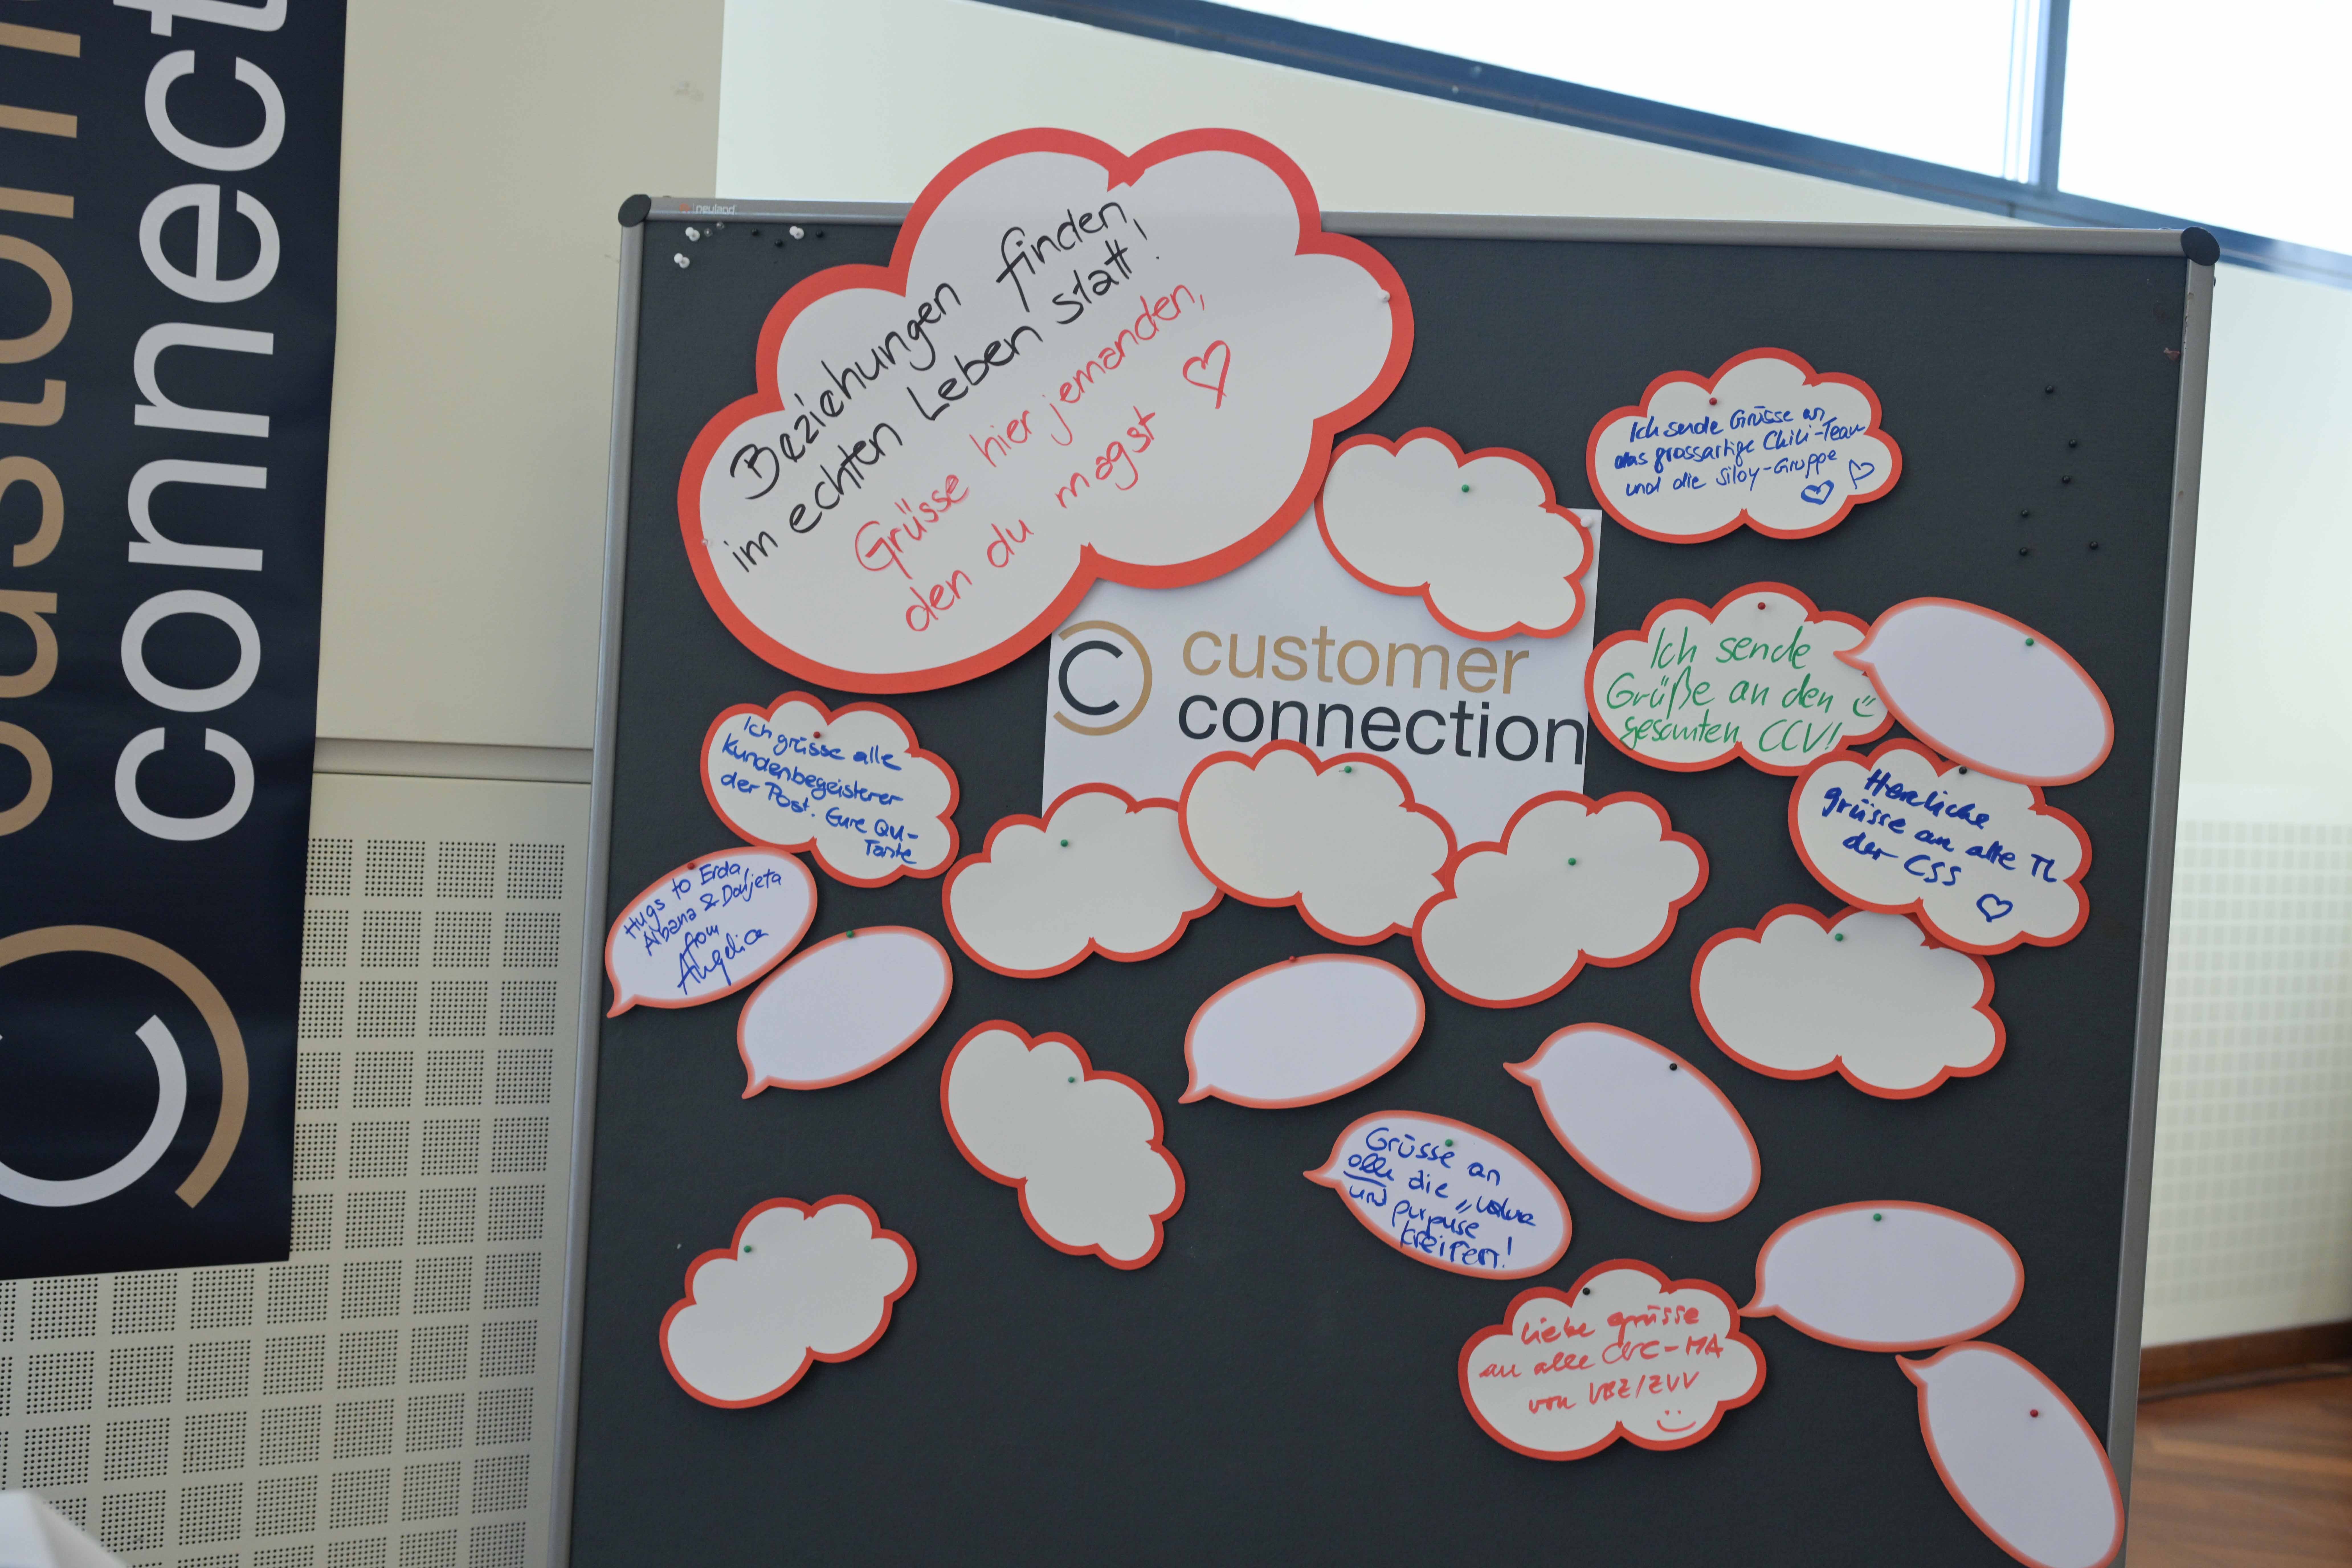 custom
connect
neuland
Beziehungen finden
im echten Leben statt!
Grüsse hier jemanden,
den du magst
Ich sende Grüsse an
das grossartige Chili-Team
und die Siloy-Gruppe
customer
connection
Ich sende
Grüße an den
gesamten CCV!
Ich grüsse alle
Kundenbegeisterer
der Post. Eure QU-
Tante
Herzliche
grüsse an alle TL
der CSS
Hugs to Erda,
Albana & Donjeta
from
Angelica
Grüsse an
alle die "value
und purpuse
kreiren!
liebe grüsse
an alle CRC-MA
von VBZ/ZVV